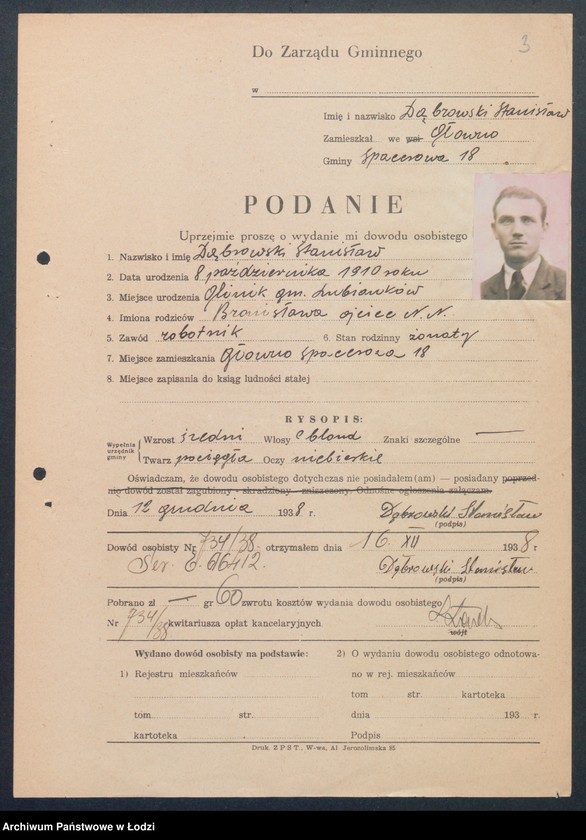 3
Do Zarządu Gminnego
w
Imię i nazwisko Dąbrowski Stanisław
Zamieszkał we wsi Głowno
Gminy Spacerowa 18
PODANIE
Uprzejmie proszę o wydanie mi dowodu osobistego
1. Nazwisko i imię Dąbrowski Stanisław
2. Data urodzenia 8 października 1910 roku
3. Miejsce urodzenia Glinik gm. Lubianków
4. Imiona rodziców Bronisława ojciec N. N.
5. Zawód robotnik 6. Stan rodzinny żonaty
7. Miejsce zamieszkania Głowno Spacerowa 18
8. Miejsce zapisania do ksiąg ludności stałej
RYSOPIS:
Wypełnia urzędnik gminy
Wzrost średni Włosy c blond Znaki szczególne —
Twarz pociągła Oczy niebieskie
Oświadczam, że dowodu osobistego dotychczas nie posiadałem(am) — posiadany poprzed-
nio dowód został zagubiony - skradziony - zniszczony. Odnośne ogłoszenia załączam.
Dnia 12 grudnia 1938 r. Dąbrowski Stanisław
(podpis)
Dowód osobisty Nr 734/38 otrzymałem dnia 16. XII 1938 r
Ser. E. 66412. Dąbrowski Stanisław
(podpis)
Pobrano zł — gr 60 zwrotu kosztów wydania dowodu osobistego
Nr 734/38 kwitariusza opłat kancelaryjnych
wójt
Wydano dowód osobisty na podstawie:
1) Rejestru mieszkańców
tom str.
kartoteka
2) O wydaniu dowodu osobistego odnotowa-
no w rej. mieszkańców
tom str. kartoteka
dnia 193 r.
Podpis
Druk. ZPST, W-wa, Al Jerozolimska 85
Archiwum Państwowe w Łodzi